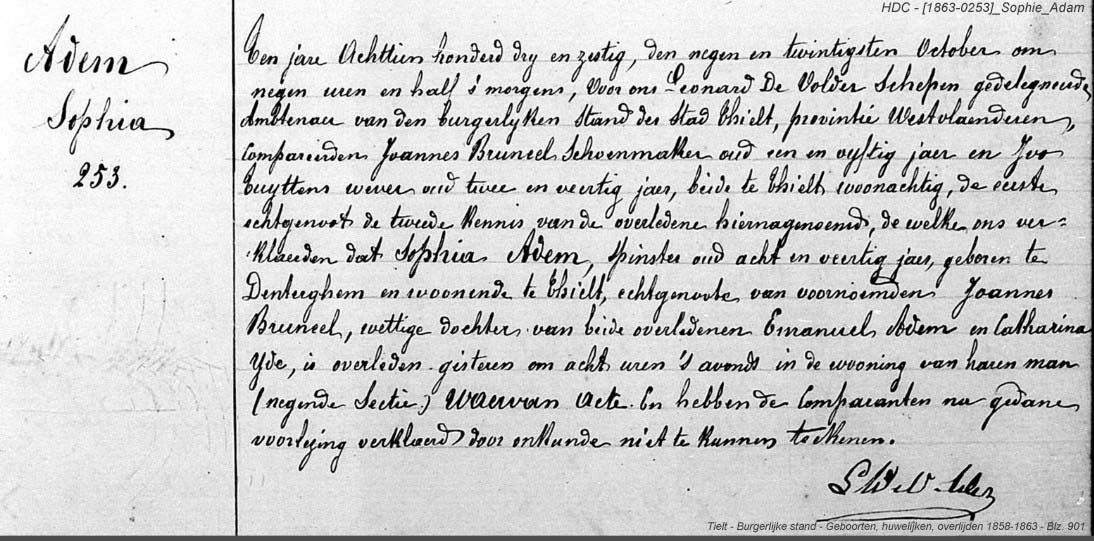 HDC - [1863-0253]_Sophie_Adam
Adem
Sophia
253.
Ten jare Achttien honderd dry en zestig, den negen en twintigsten October om
negen uren en half s'morgens, Voor ons Leonard De Volder Schepen gedelegueerde
Ambtenaer van den burgerlyken Stand der Stad Thielt, provintie Westvlaenderen,
Compareerden Joannes Bruneel Schoenmaker oud een en vyftig jaer en Ivo
buyttens wever oud twee en veertig jaer, beide te Thielt woonachtig, de eerste
echtgenoot de tweede kennis van de overledene hiernagenoemd, de welke ons ver=
klaerden dat Sophia Adem, spinster oud acht en veertig jaer, geboren te
Denterghem en woonende te Thielt, echtgenoote van voornoemden Joannes
Bruneel, wettige dochter van beide overledenen Emanuel Adem en Catharina
Yde, is overleden gisteren om acht uren 's avonds in de wooning van haren man
(negende Sectie.) Waervan Acte. En hebben de Comparanten na gedane
voorlezing verklaerd door onkunde niet te kunnen teekenen.
Tielt - Burgerlijke stand - Geboorten, huwelijken, overlijden 1858-1863 - Blz. 901